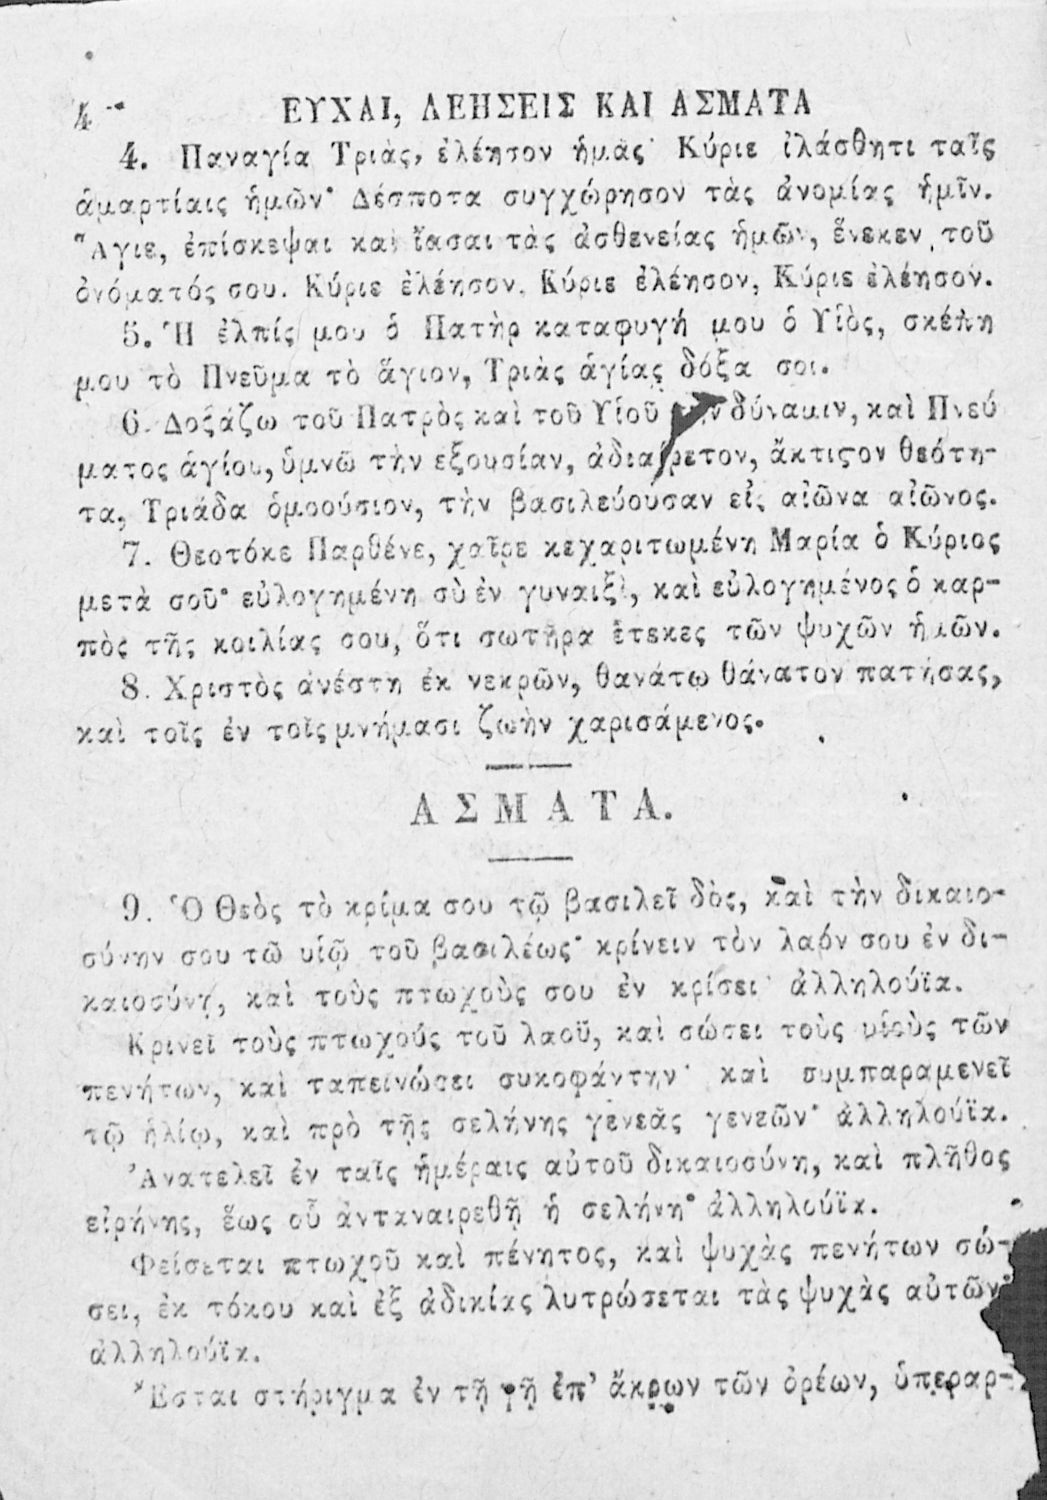 4 ΕΥΧΑΙ, ΔΕΗΣΕΙΣ ΚΑΙ ΑΣΜΑΤΑ
4. Παναγία Τριὰς, ἐλέησον ἡμᾶς· Κύριε ἱλάσθητι ταῖς
ἁμαρτίαις ἡμῶν· Δέσποτα συγχώρησον τὰς ἀνομίας ἡμῖν.
Ἅγιε, ἐπίσκεψαι καὶ ἴασαι τὰς ἀσθενείας ἡμῶν, ἕνεκεν τοῦ
ὀνόματός σου. Κύριε ἐλέησον, Κύριε ἐλέησον, Κύριε ἐλέησον.
5. Ἡ ἐλπίς μου ὁ Πατὴρ καταφυγή μου ὁ Υἱὸς, σκέπη
μου τὸ Πνεῦμα τὸ ἅγιον, Τριὰς ἁγίας δόξα σοι.
6. Δοξάζω τοῦ Πατρὸς καὶ τοῦ Υἱοῦ τὴν δύναμιν, καὶ Πνεύ
ματος ἁγίου, ὑμνῶ τὴν εξουσίαν, ἀδιαίρετον, ἄκτιστον θεότη-
τα, Τριάδα ὁμοούσιον, τὴν βασιλεύουσαν εἰς αἰῶνα αἰῶνος.
7. Θεοτόκε Παρθένε, χαῖρε κεχαριτωμένη Μαρία ὁ Κύριος
μετὰ σοῦ· εὐλογημένη σὺ ἐν γυναιξὶ, καὶ εὐλογημένος ὁ καρ-
πὸς τῆς κοιλίας σου, ὅτι σωτῆρα ἔτεκες τῶν ψυχῶν ἡμῶν.
8. Χριστὸς ἀνέστη ἐκ νεκρῶν, θανάτῳ θάνατον πατήσας,
καὶ τοῖς ἐν τοῖς μνήμασι ζωὴν χαρισάμενος.
ΑΣΜΑΤΑ.
9. Ὁ Θεὸς τὸ κρίμα σου τῷ βασιλεῖ δὸς, καὶ τὴν δικαιο-
σύνην σου τῶ υἱῷ τοῦ βασιλέως· κρίνειν τὸν λαόν σου ἐν δι-
καιοσύνῃ, καὶ τοὺς πτωχοὺς σου ἐν κρίσει· ἀλληλούϊα.
Κρινεῖ τοὺς πτωχούς τοῦ λαοῦ, καὶ σώσει τοὺς υἱοὺς τῶν
πενήτων, καὶ ταπεινώσει συκοφάντην· καὶ συμπαραμενεῖ
τῷ ἡλίῳ, καὶ πρὸ τῆς σελήνης γενεᾶς γενεῶν· ἀλληλούϊα.
Ἀνατελεῖ ἐν ταῖς ἡμέραις αὐτοῦ δικαιοσύνη, καὶ πλῆθος
εἰρήνης, ἕως οὗ ἀνταναιρεθῇ ἡ σελήνη· ἀλληλούϊα.
Φείσεται πτωχοῦ καὶ πένητος, καὶ ψυχὰς πενήτων σώ-
σει, ἐκ τόκου καὶ ἐξ ἀδικίας λυτρώσεται τὰς ψυχὰς αὐτῶν·
ἀλληλούϊα.
Ἔσται στήριγμα ἐν τῇ γῇ ἐπ' ἄκρων τῶν ὀρέων, ὑπεραρ-